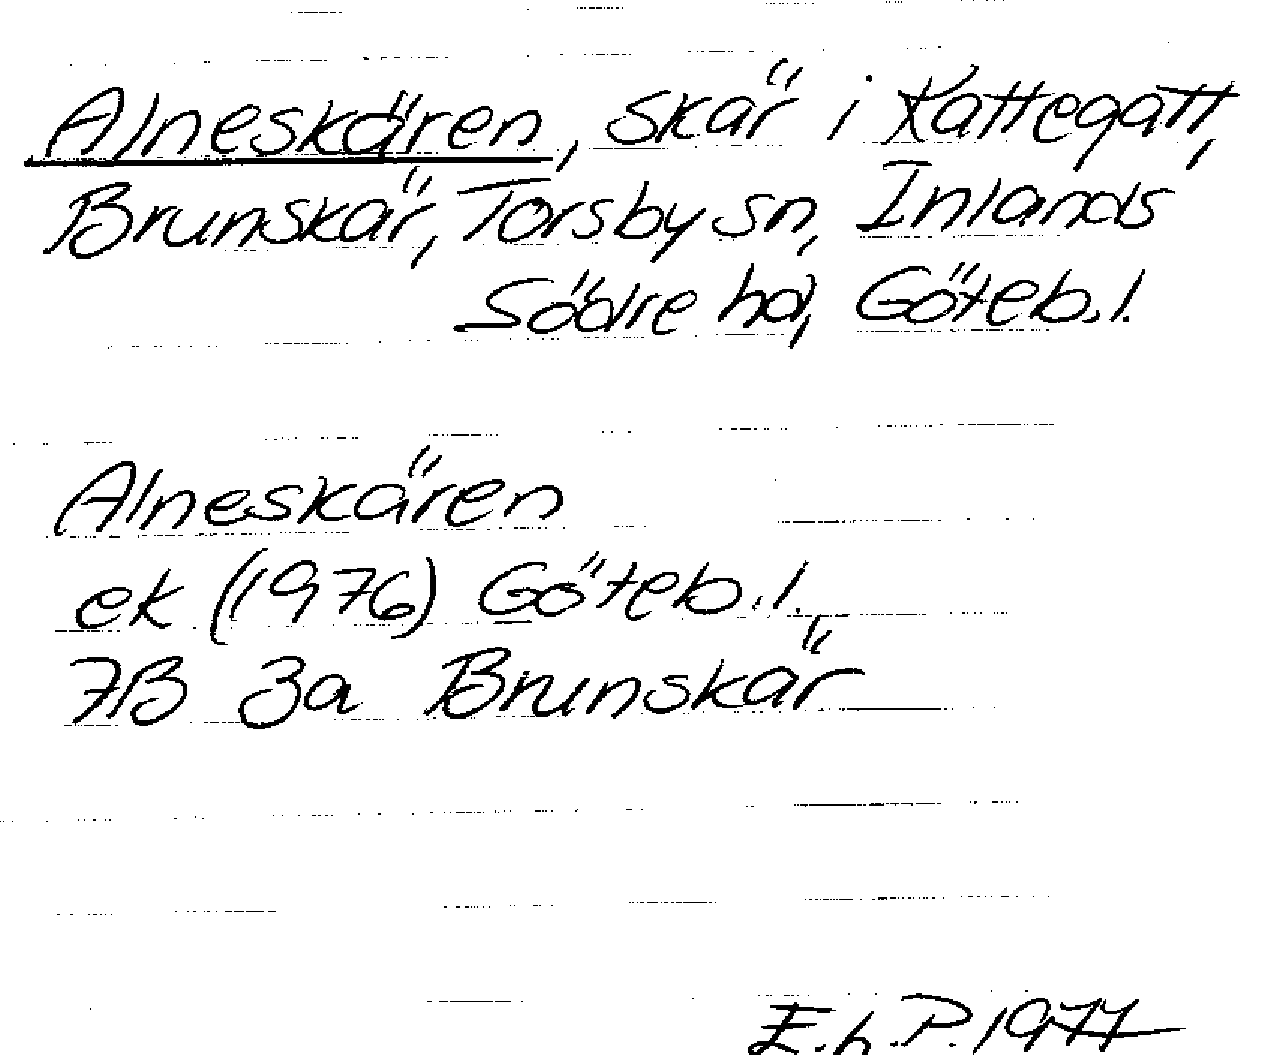 Alneskären, skär i Kattegatt,
Brunskär, Torsby sn, Inlands
Södre hd, Göteb. l.
Alneskären
ek (1976) Göteb. l.
7B 3a Brunskär
E. h. P. 1977